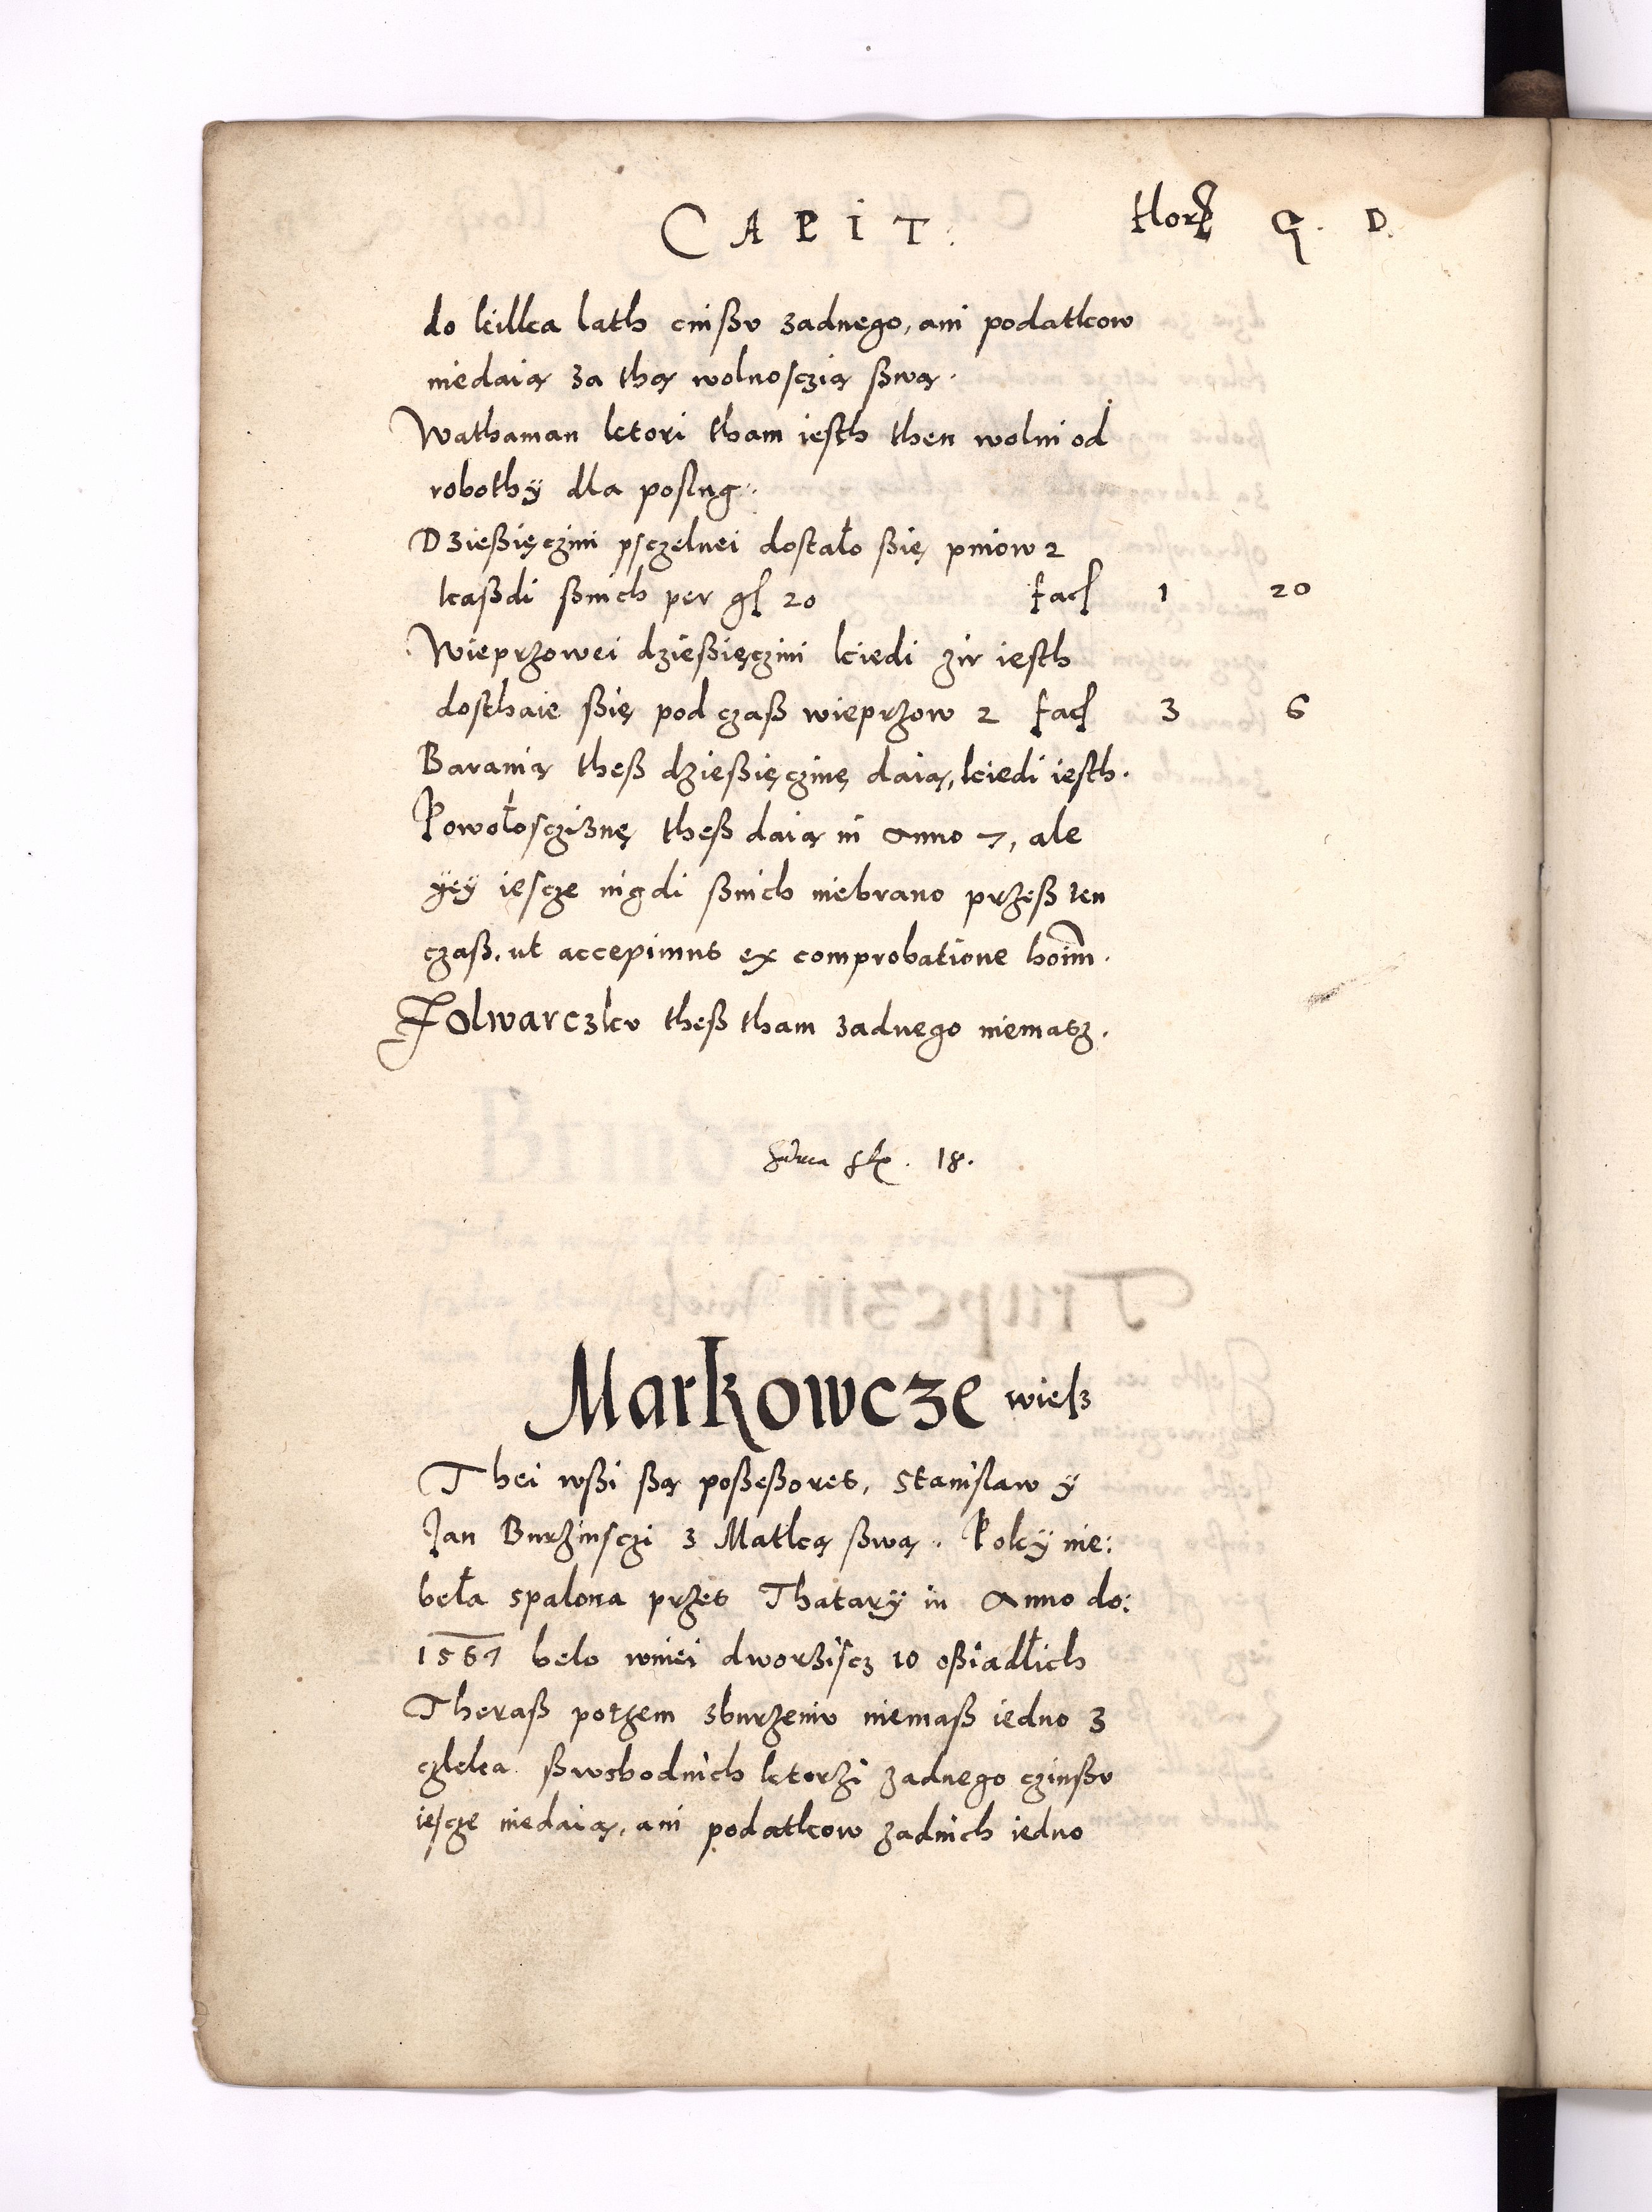 CAPIT. flor G. D.
do kilka lath cinßv zadnego, ani podatkow
niedaią za thą wolnosczią ßwą.
Wathaman ktori tham iesth then wolni od
robothÿ dla poslug.
Dzießięczini psczelnei dostało ßię pniow 2
kaßdi ßnich per gl 20 fac 1 20
Wieprzowei dzießięczini kiedi zir iesth
dosthaie ßię pod czaß wieprzow 2 fac 3 6
Baranią theß dzießięczinę daią, kiedi iesth.
Powołoscziznę theß daią in Anno 7, ale
ÿeÿ iescze nigdi ßnich niebrano przeß ten
czaß, ut accepimus ex comprobatione hoim.
Folwarczkv theß tham zadnego niemasz.
18.
Markowcze wieß
Thei wßi ßą poßeßores, Stanislaw ÿ
Jan Burzinsczi z Matką ßwą. Pokÿ nie:
beła spalona przes Thatarÿ in Anno do:
1567 belo wniei dworzisc3 10 oßiadłich
Theraß potzem zburzeniv niemaß iedno 3
czleka ßwshodnich ktorzi zadnego czinßv
iescze niedaią, ani podatkow zadnich iedno